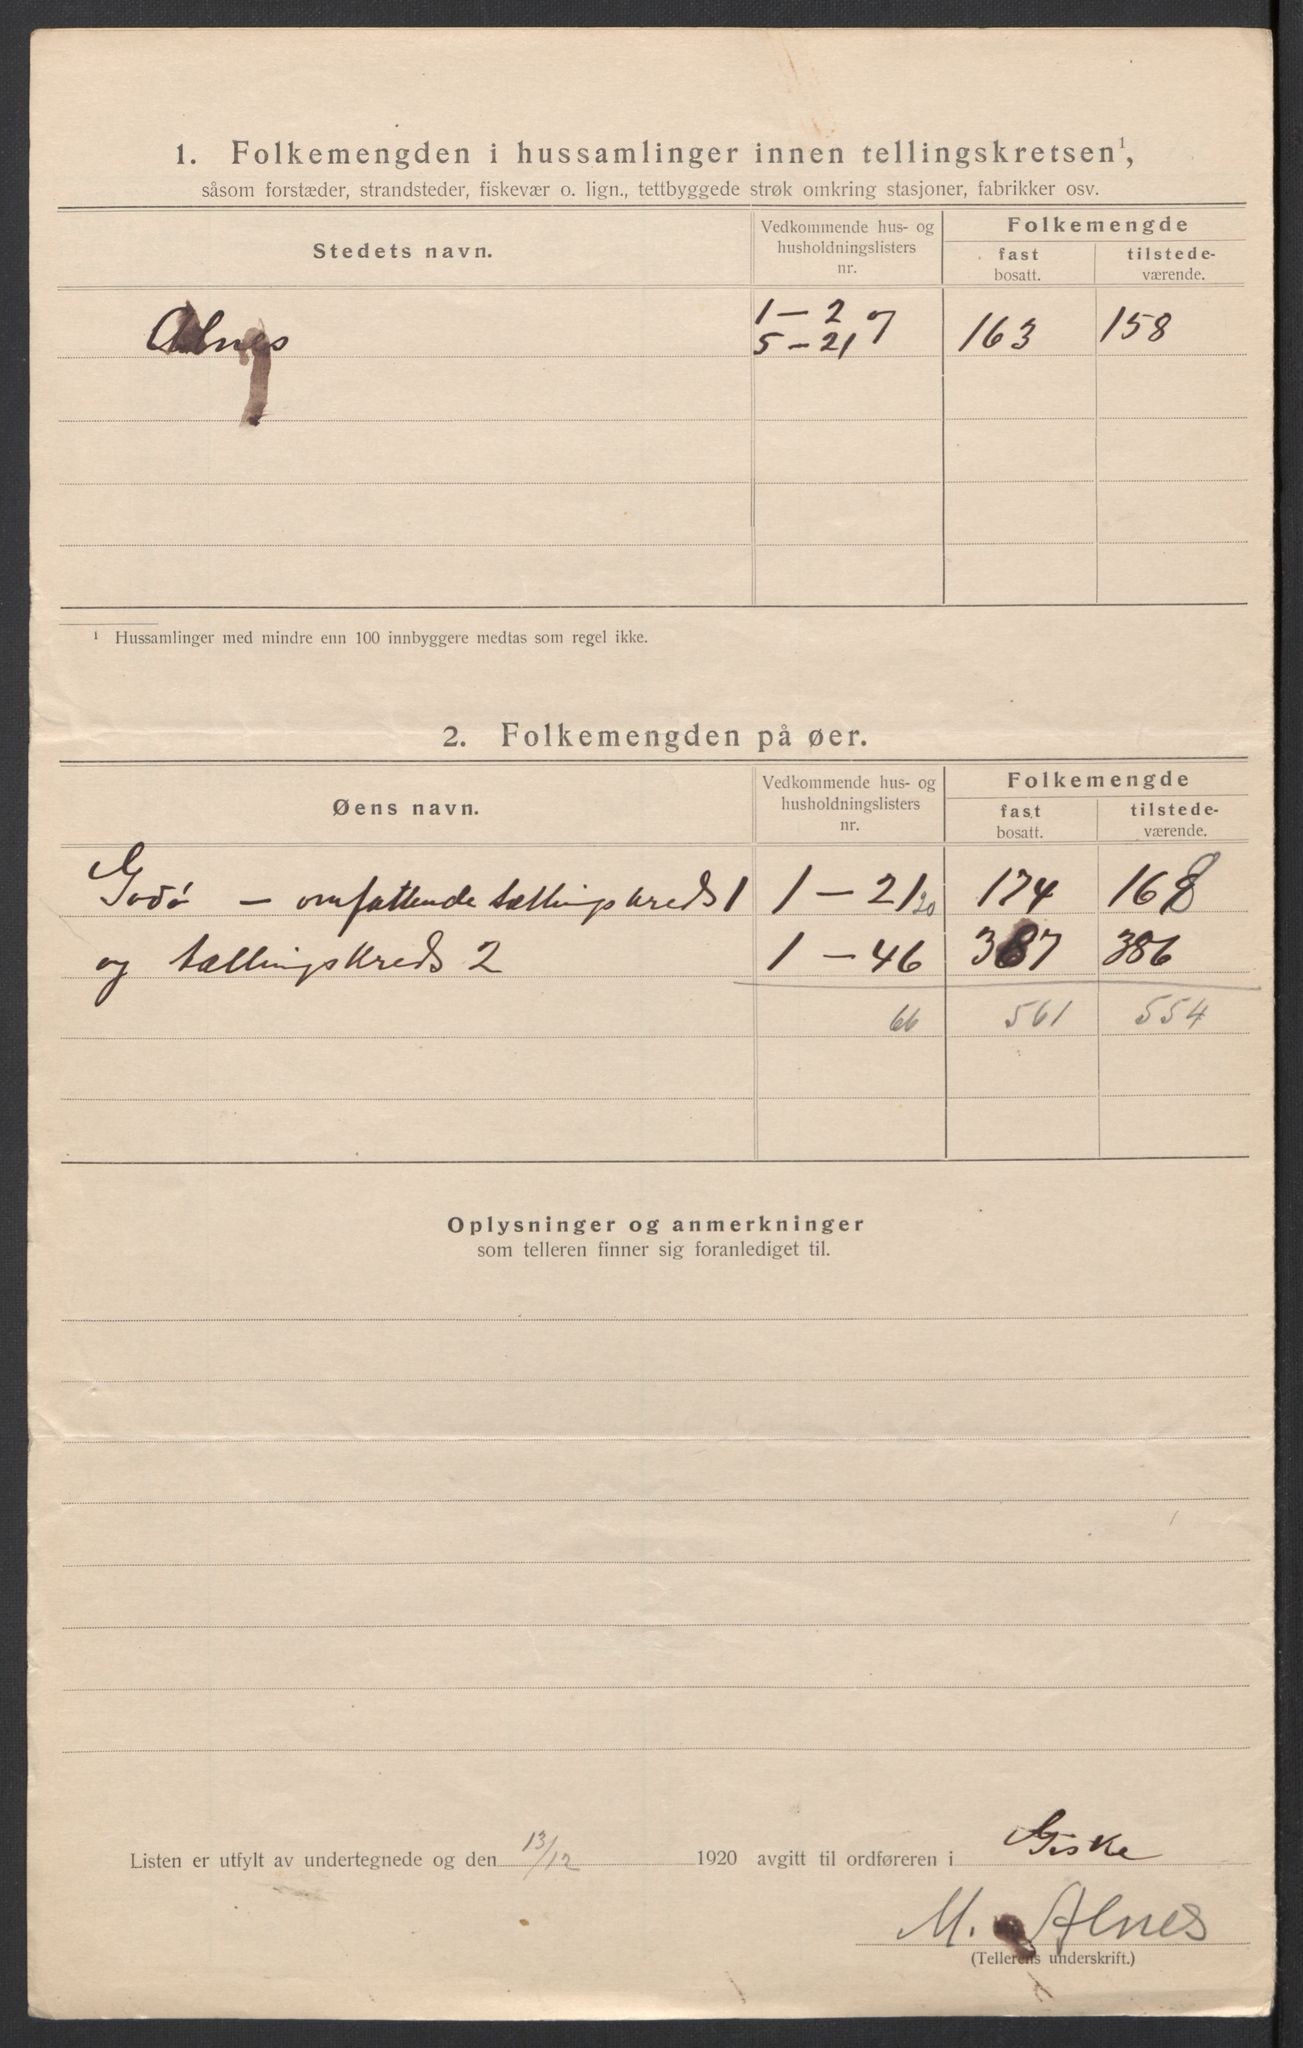 1. Folkemengden i hussamlinger innen tellingskretsen¹,
såsom forstæder, strandsteder, fiskevær o. lign., tettbyggede strøk omkring stasjoner, fabrikker osv.
Stedets navn.
Vedkommende hus- og
husholdningslisters
nr.
Folkemengde
fast
bosatt.
tilstede-
værende.
Alnes
1 – 2
5 – 21
163
158
¹ Hussamlinger med mindre enn 100 innbyggere medtas som regel ikke.
2. Folkemengden på øer.
Øens navn.
Vedkommende hus- og
husholdningslisters
nr.
Folkemengde
fast
bosatt.
tilstede-
værende.
Godø – omfattende tællingskreds 1 1 – 21 20 174 168
og tællingskreds 2 1 – 46 387 386
66 561 554
Oplysninger og anmerkninger
som telleren finner sig foranlediget til.
Listen er utfylt av undertegnede og den 13/12 1920 avgitt til ordføreren i Giske
M. Alnes
(Tellerens underskrift.)